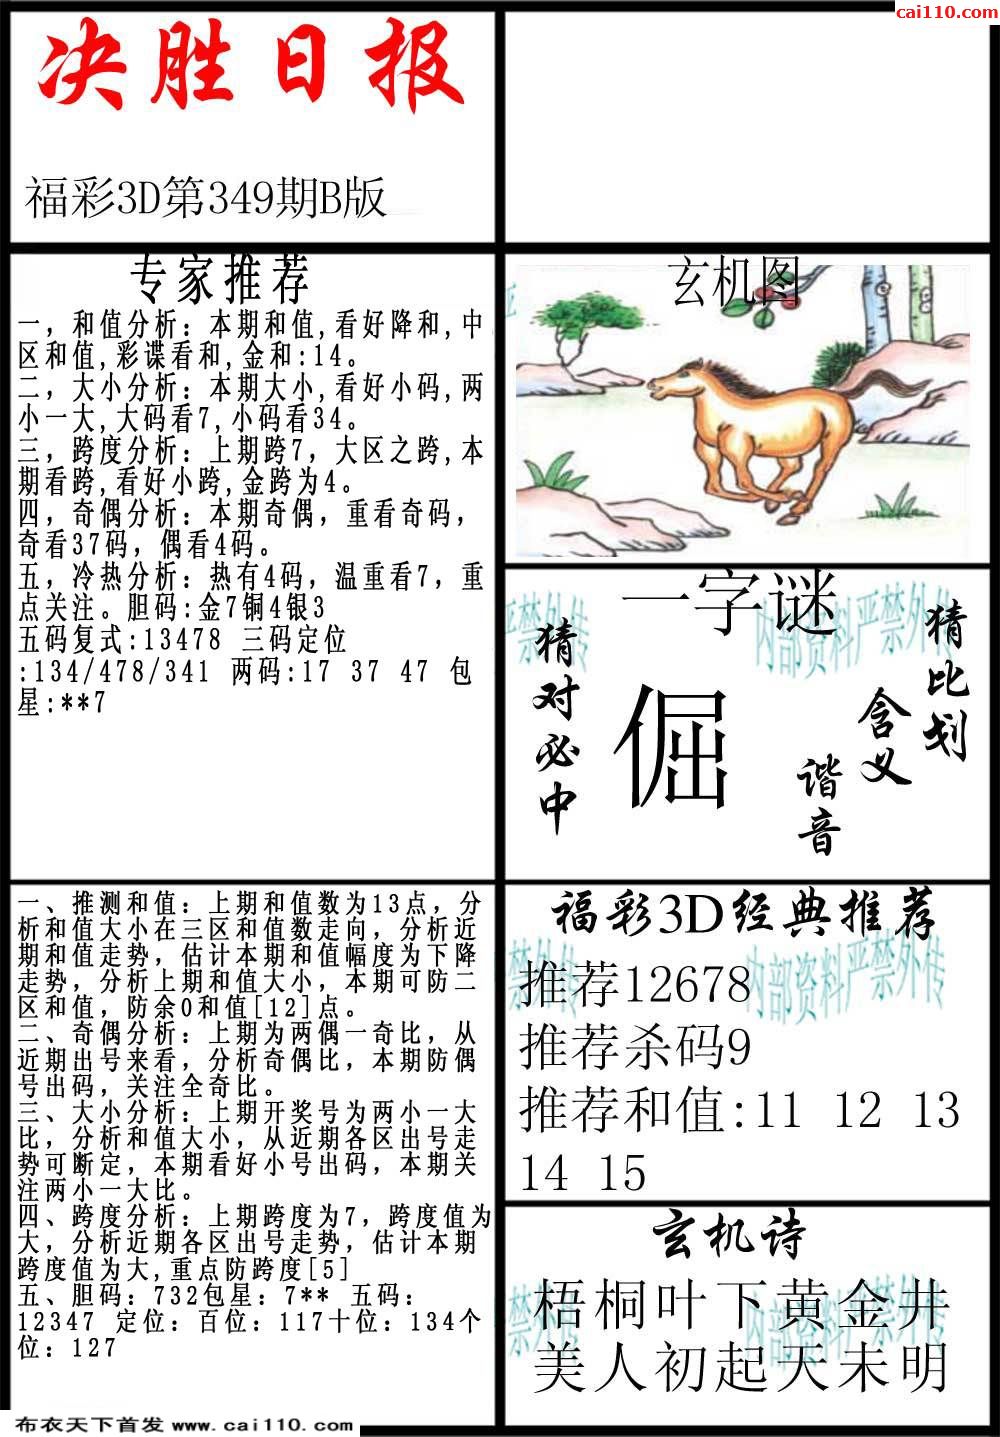 cai110.com
决胜日报
福彩3D第349期B版
专家推荐
一，和值分析：本期和值,看好降和,中
区和值,彩谍看和,金和:14。
二，大小分析：本期大小,看好小码,两
小一大,大码看7,小码看34。
三，跨度分析：上期跨7，大区之跨,本
期看跨,看好小跨,金跨为4。
四，奇偶分析：本期奇偶，重看奇码，
奇看37码，偶看4码。
五，冷热分析：热有4码，温重看7，重
点关注。胆码:金7铜4银3
五码复式:13478 三码定位
:134/478/341 两码:17 37 47 包
星:**7
玄机图
一字谜
猜对必中
倔
谐音
含义
猜比划
内部资料严禁外传
一、推测和值：上期和值数为13点，分
析和值大小在三区和值数走向，分析近
期和值走势，估计本期和值幅度为下降
走势，分析上期和值大小，本期可防二
区和值，防余0和值[12]点。
二、奇偶分析：上期为两偶一奇比，从
近期出号来看，分析奇偶比，本期防偶
号出码，关注全奇比。
三、大小分析：上期开奖号为两小一大
比，分析和值大小，从近期各区出号走
势可断定，本期看好小号出码，本期关
注两小一大比。
四、跨度分析：上期跨度为7，跨度值为
大，分析近期各区出号走势，估计本期
跨度值为大,重点防跨度[5]
五、胆码：732包星：7** 五码：
12347 定位：百位：117十位：134个
位：127
福彩3D经典推荐
推荐12678
推荐杀码9
推荐和值:11 12 13
14 15
内部资料严禁外传
玄机诗
梧桐叶下黄金井
美人初起天未明
内部资料严禁外传
布衣天下首发 www.cai110.com